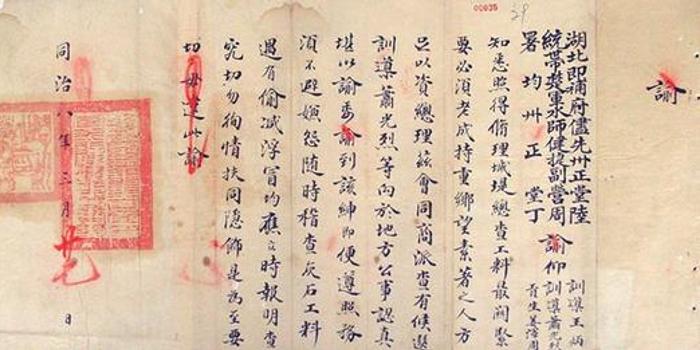 諭
湖北即補府儘先州正堂陸
統帶楚軍水師健捷副營周
署均州正堂丁
諭仰
訓導王炳
訓導蕭光烈
知悉照得脩理城堤總查工料最關緊
要必須老成持重鄉望素著之人方
足以資總理茲會同商派查有候選
訓導蕭光烈等向於地方公事認真
堪以諭委諭到該紳即便遵照務
須不避嫌怨隨時稽查灰石工料
遇有偷減浮冒均應立時報明查
究切勿徇情扶同隱飾是為至要
切毋違此諭
同治八年三月廿
日
00035